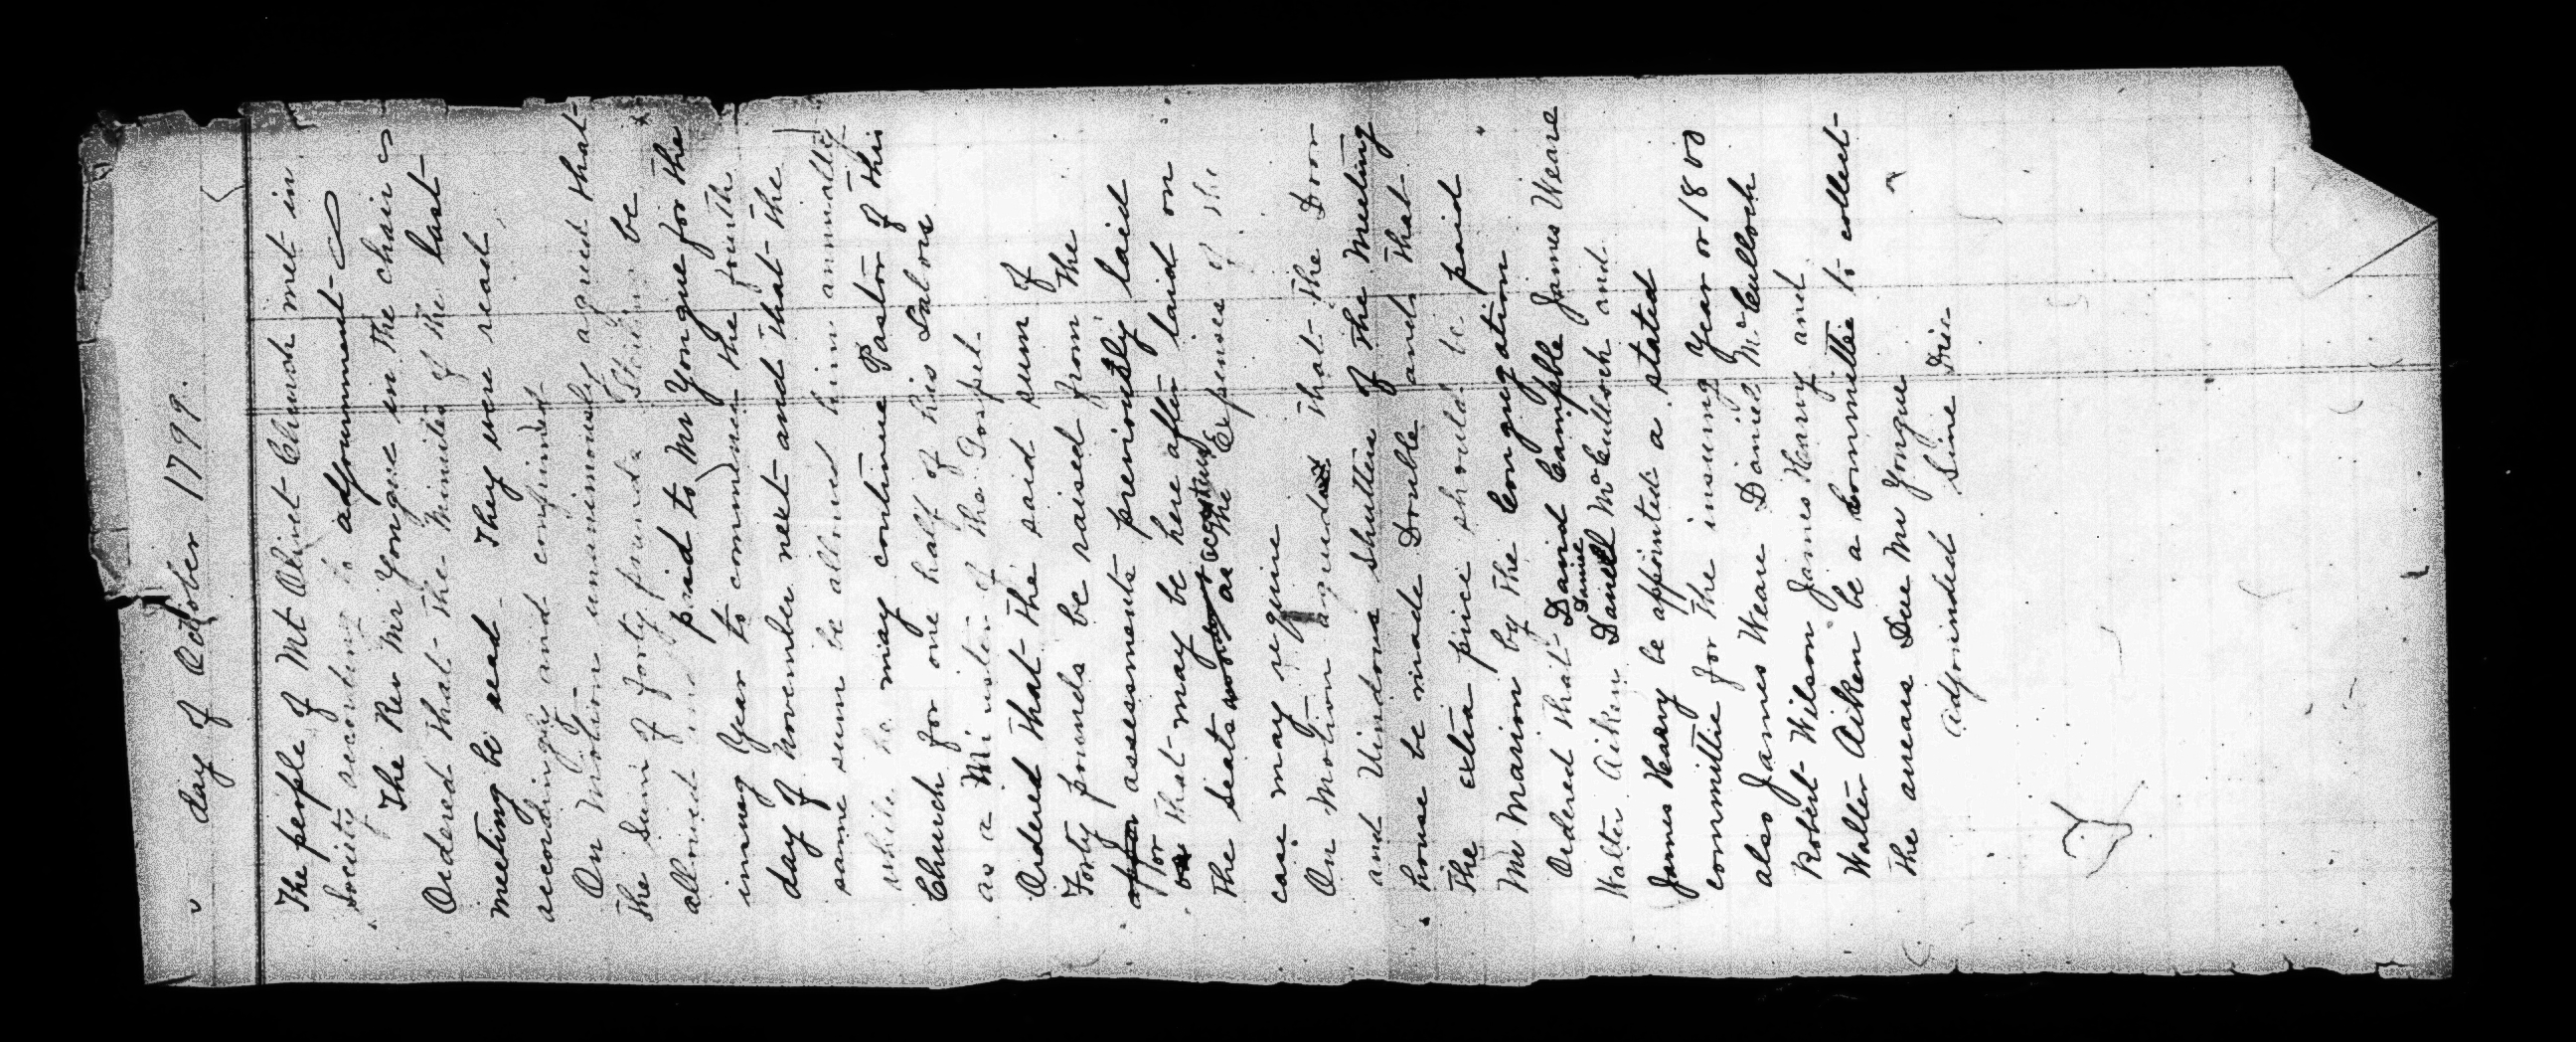 day of October 1799.
The people of Mt Olivet Church met in
Society according to adjournment
The Rev Mr Yongue in the chair
Ordered that the Minutes of the last
meeting be read They were read
accordingly and confirmed
On Motion unanimously agreed that
the Sum of forty pounds Sterling be
allowed and paid to Mr Yongue for the
insuing Year to commence the fourth
day of November next and that the
same sum be allowed him annually
while he may continue Pastor of this
Church for one half of his Labors
as a Minister of the Gospel.
Ordered that the said sum of
Forty pounds be raised from the
assesments previously laid
or that may be here after laid on
the Seats as the Expenses of the
case may require
On Motion agreed that the Door
and Windows Shutters of the Meeting
house be made Double and that
the extra price should be paid
Mr Marion by the Congregation
Ordered that David Campble James Weare
Walter Aiken Daniel McCulloch and
James Harvy be appointed a stated
committie for the insuing Year or 1800
also James Weare Daniel McCulloch
Robert Wilson James Harvy and
Walter Aiken be a committie to collect
the arrears Due Mr Yongue
Adjourned Sine Die